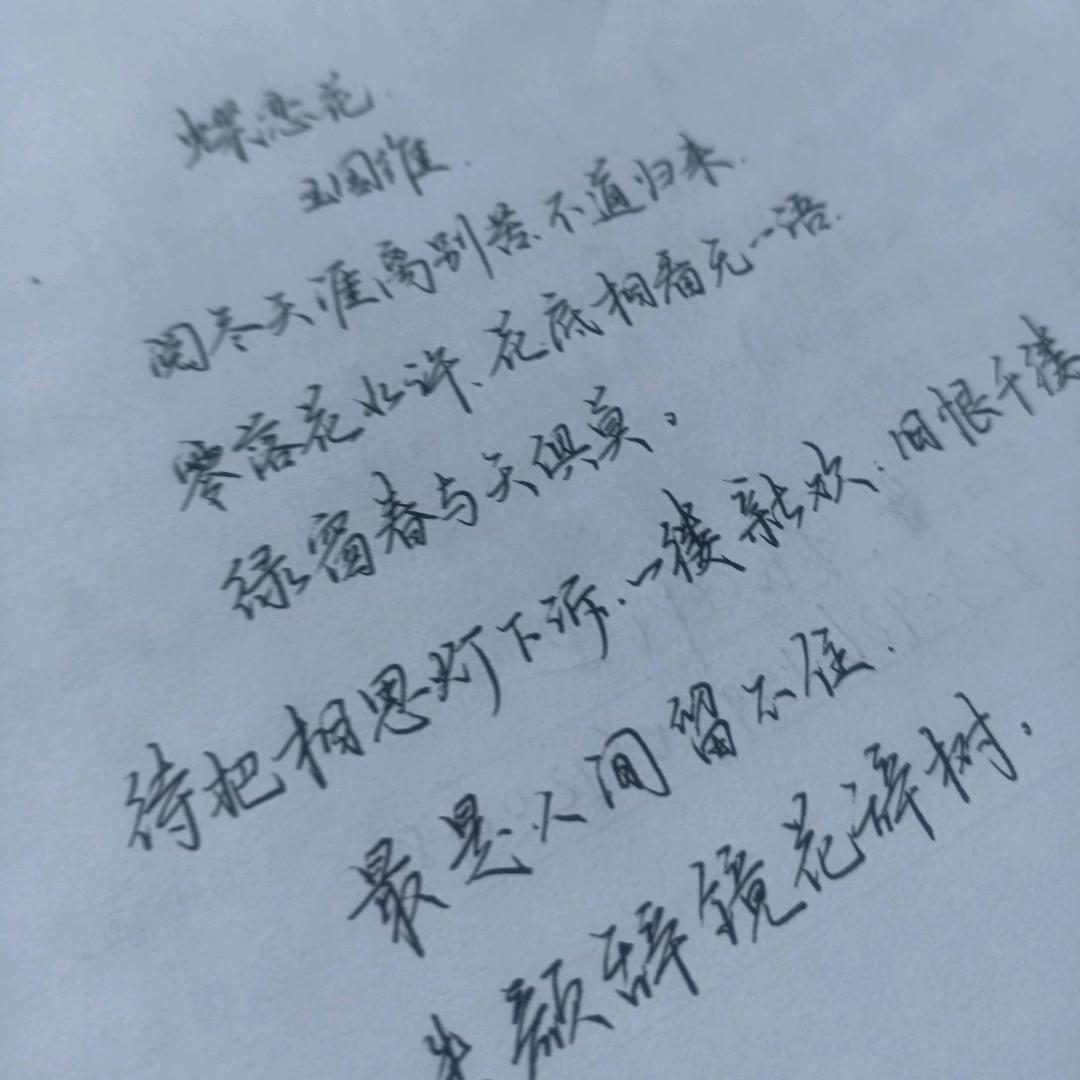 蝶恋花
王国维.
阅尽天涯离别苦、不道归来.
零落花如许、花底相看无一语.
绿窗春与天俱莫。
待把相思灯下诉、一缕新欢.旧恨千缕
最是人间留不住.
朱颜辞镜花辞树.